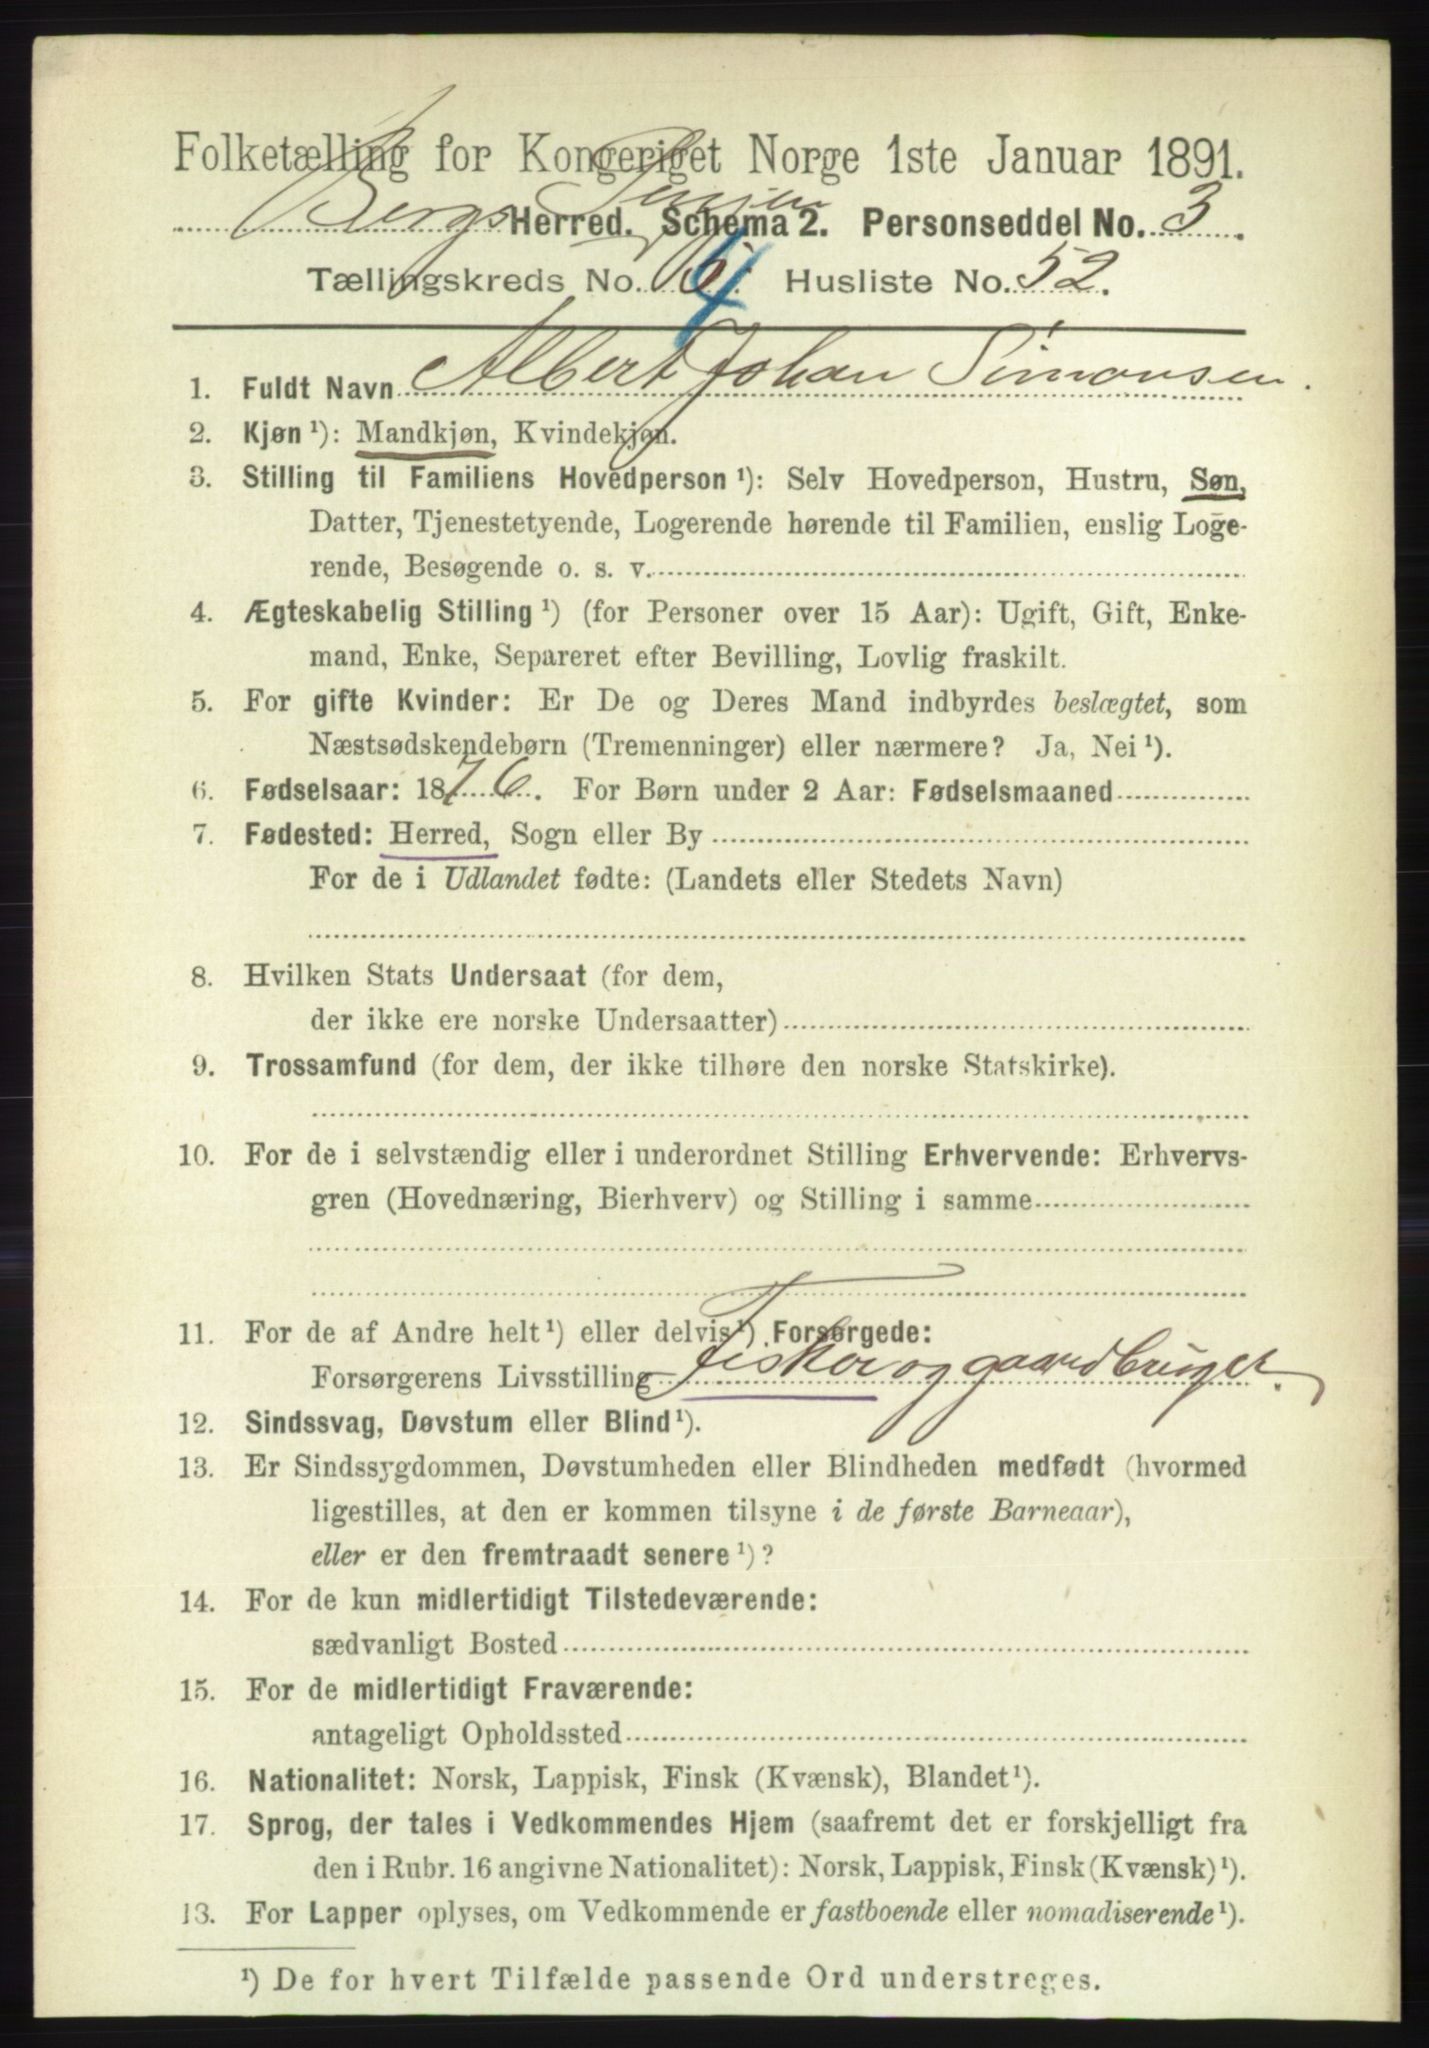 Folketælling for Kongeriget Norge 1ste Januar 1891.
Bergs Herred. Schema 2. Personseddel No. 3.
Tællingskreds No. 4. Husliste No. 52.
1. Fuldt Navn Albert Johan Simonsen.
2. Kjøn ¹): Mandkjøn, Kvindekjøn.
3. Stilling til Familiens Hovedperson ¹): Selv Hovedperson, Hustru, Søn,
Datter, Tjenestetyende, Logerende hørende til Familien, enslig Loge-
rende, Besøgende o. s. v.
4. Ægteskabelig Stilling ¹) (for Personer over 15 Aar): Ugift, Gift, Enke-
mand, Enke, Separeret efter Bevilling, Lovlig fraskilt.
5. For gifte Kvinder: Er De og Deres Mand indbyrdes beslægtet, som
Næstsødskendebørn (Tremenninger) eller nærmere? Ja, Nei ¹).
6. Fødselsaar: 1876. For Børn under 2 Aar: Fødselsmaaned
7. Fødested: Herred, Sogn eller By
For de i Udlandet fødte: (Landets eller Stedets Navn)
8. Hvilken Stats Undersaat (for dem,
der ikke ere norske Undersaatter)
9. Trossamfund (for dem, der ikke tilhøre den norske Statskirke).
10. For de i selvstændig eller i underordnet Stilling Erhvervende: Erhvervs-
gren (Hovednæring, Bierhverv) og Stilling i samme
11. For de af Andre helt ¹) eller delvis ¹) Forsørgede:
Forsørgerens Livsstilling Fisker og gaardbruger
12. Sindssvag, Døvstum eller Blind ¹).
13. Er Sindssygdommen, Døvstumheden eller Blindheden medfødt (hvormed
ligestilles, at den er kommen tilsyne i de første Barneaar),
eller er den fremtraadt senere ¹)?
14. For de kun midlertidigt Tilstedeværende:
sædvanligt Bosted
15. For de midlertidigt Fraværende:
antageligt Opholdssted
16. Nationalitet: Norsk, Lappisk, Finsk (Kvænsk), Blandet ¹).
17. Sprog, der tales i Vedkommendes Hjem (saafremt det er forskjelligt fra
den i Rubr. 16 angivne Nationalitet): Norsk, Lappisk, Finsk (Kvænsk) ¹).
13. For Lapper oplyses, om Vedkommende er fastboende eller nomadiserende ¹).
¹) De for hvert Tilfælde passende Ord understreges.